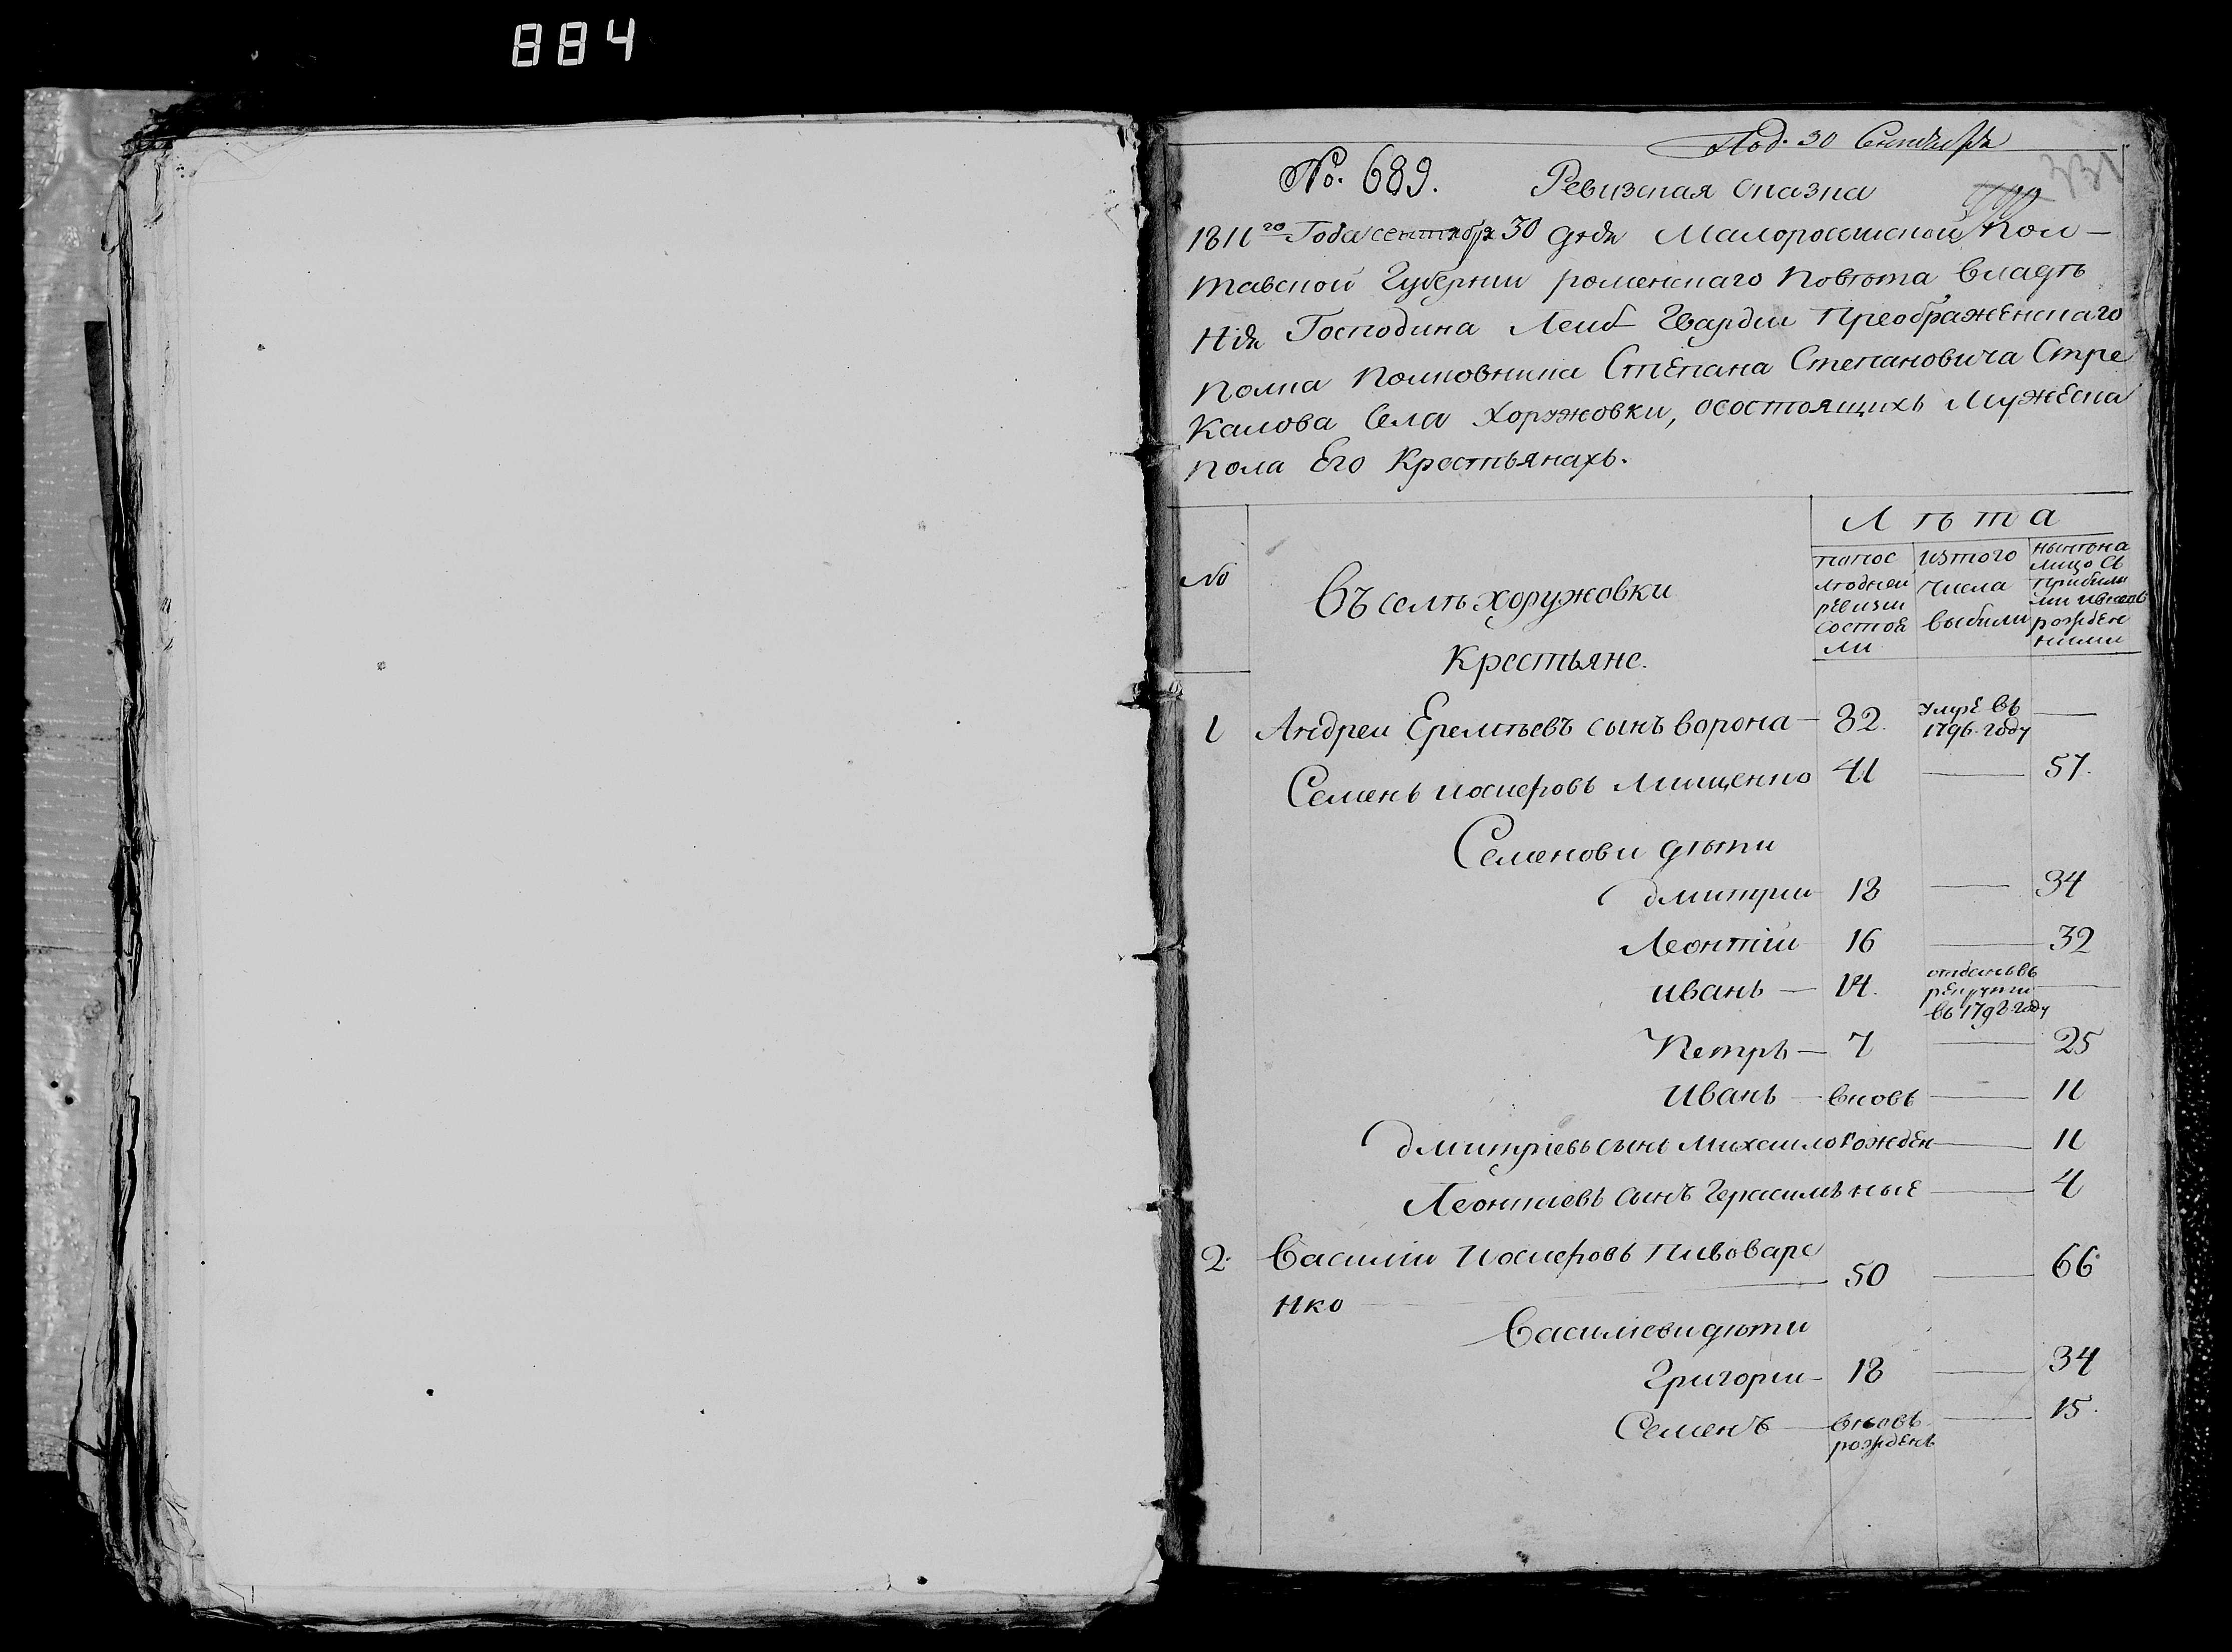 884
Под. 30 Сентября
331
No. 689. Ревизская сказка
1811го Года сентября 30 дня Малороссиской Пол–
тавской Губернии роменскаго повѣта владѣ
нія Господина Леиб Гвардіи Преображенскаго
полка полковника Степана Степановича Стре
Калова Села Хоружовки, осостоящихъ Мужеска
пола Его Крестьянахъ.
Л ѣ т а
No
Въ селѣ хоружовки
Крестьяне.
попос
лѣднеи
ревизіи
состоя
ли
изтого
числа
выбили
нынѣна
лицо съ
прибыли
ми ивновь
рожден
ними
1 Андреи Еремѣевъ сынъ ворона – 82. умре въ
1796. году —
Семенъ иосифовъ Мищенко 41 — 57.
Семенови дѣти
дмитрии 18 — 34
Леонтіи 16 — 32
иванъ — 14. отданъвъ
рекруты
въ 1792. году —
Петръ — 7 — 25
иванъ — вновъ — 11
дмитріевъ сынъ Михаило рожден — 11
Леонтіевъ сынъ Герасимъ ные — 4
2. Василіи Иосифовъ пивоваре
нко — 50 — 66
Василіеви дѣти
Григории – 18 — 34
Семенъ — вновъ
рожденъ — 15.